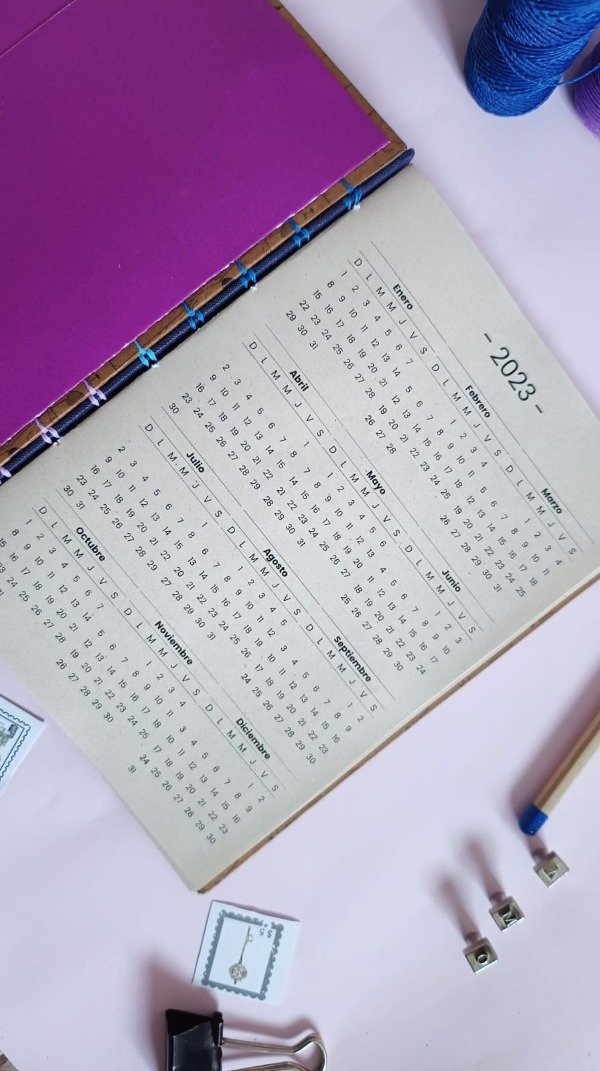 - 2023 -
Enero
D L M M J V S
1 2 3 4 5 6 7
8 9 10 11 12 13 14
15 16 17 18 19 20 21
22 23 24 25 26 27 28
29 30 31
Febrero
D L M M J V S
1 2 3 4
5 6 7 8 9 10 11
12 13 14 15 16 17 18
19 20 21 22 23 24 25
26 27 28
Marzo
D L M M J V S
1 2 3 4
5 6 7 8 9 10 11
12 13 14 15 16 17 18
19 20 21 22 23 24 25
26 27 28 29 30 31
Abril
D L M M J V S
1
2 3 4 5 6 7 8
9 10 11 12 13 14 15
16 17 18 19 20 21 22
23 24 25 26 27 28 29
30
Mayo
D L M M J V S
1 2 3 4 5 6
7 8 9 10 11 12 13
14 15 16 17 18 19 20
21 22 23 24 25 26 27
28 29 30 31
Junio
D L M M J V S
1 2 3
4 5 6 7 8 9 10
11 12 13 14 15 16 17
18 19 20 21 22 23 24
25 26 27 28 29 30
Julio
D L M M J V S
1
2 3 4 5 6 7 8
9 10 11 12 13 14 15
16 17 18 19 20 21 22
23 24 25 26 27 28 29
30 31
Agosto
D L M M J V S
1 2 3 4 5
6 7 8 9 10 11 12
13 14 15 16 17 18 19
20 21 22 23 24 25 26
27 28 29 30 31
Septiembre
D L M M J V S
1 2
3 4 5 6 7 8 9
10 11 12 13 14 15 16
17 18 19 20 21 22 23
24 25 26 27 28 29 30
Octubre
D L M M J V S
1 2 3 4 5 6 7
8 9 10 11 12 13 14
16 17 18 19 20 21
24 25 26 27 28
Noviembre
D L M M J V S
1 2 3 4
5 6 7 8 9 10 11
12 13 14 15 16 17 18
19 20 21 22 23 24 25
26 27 28 29 30
Diciembre
D L M M J V S
1 2
3 4 5 6 7 8 9
10 11 12 13 14 15 16
17 18 19 20 21 22 23
24 25 26 27 28 29 30
31
L
M
O